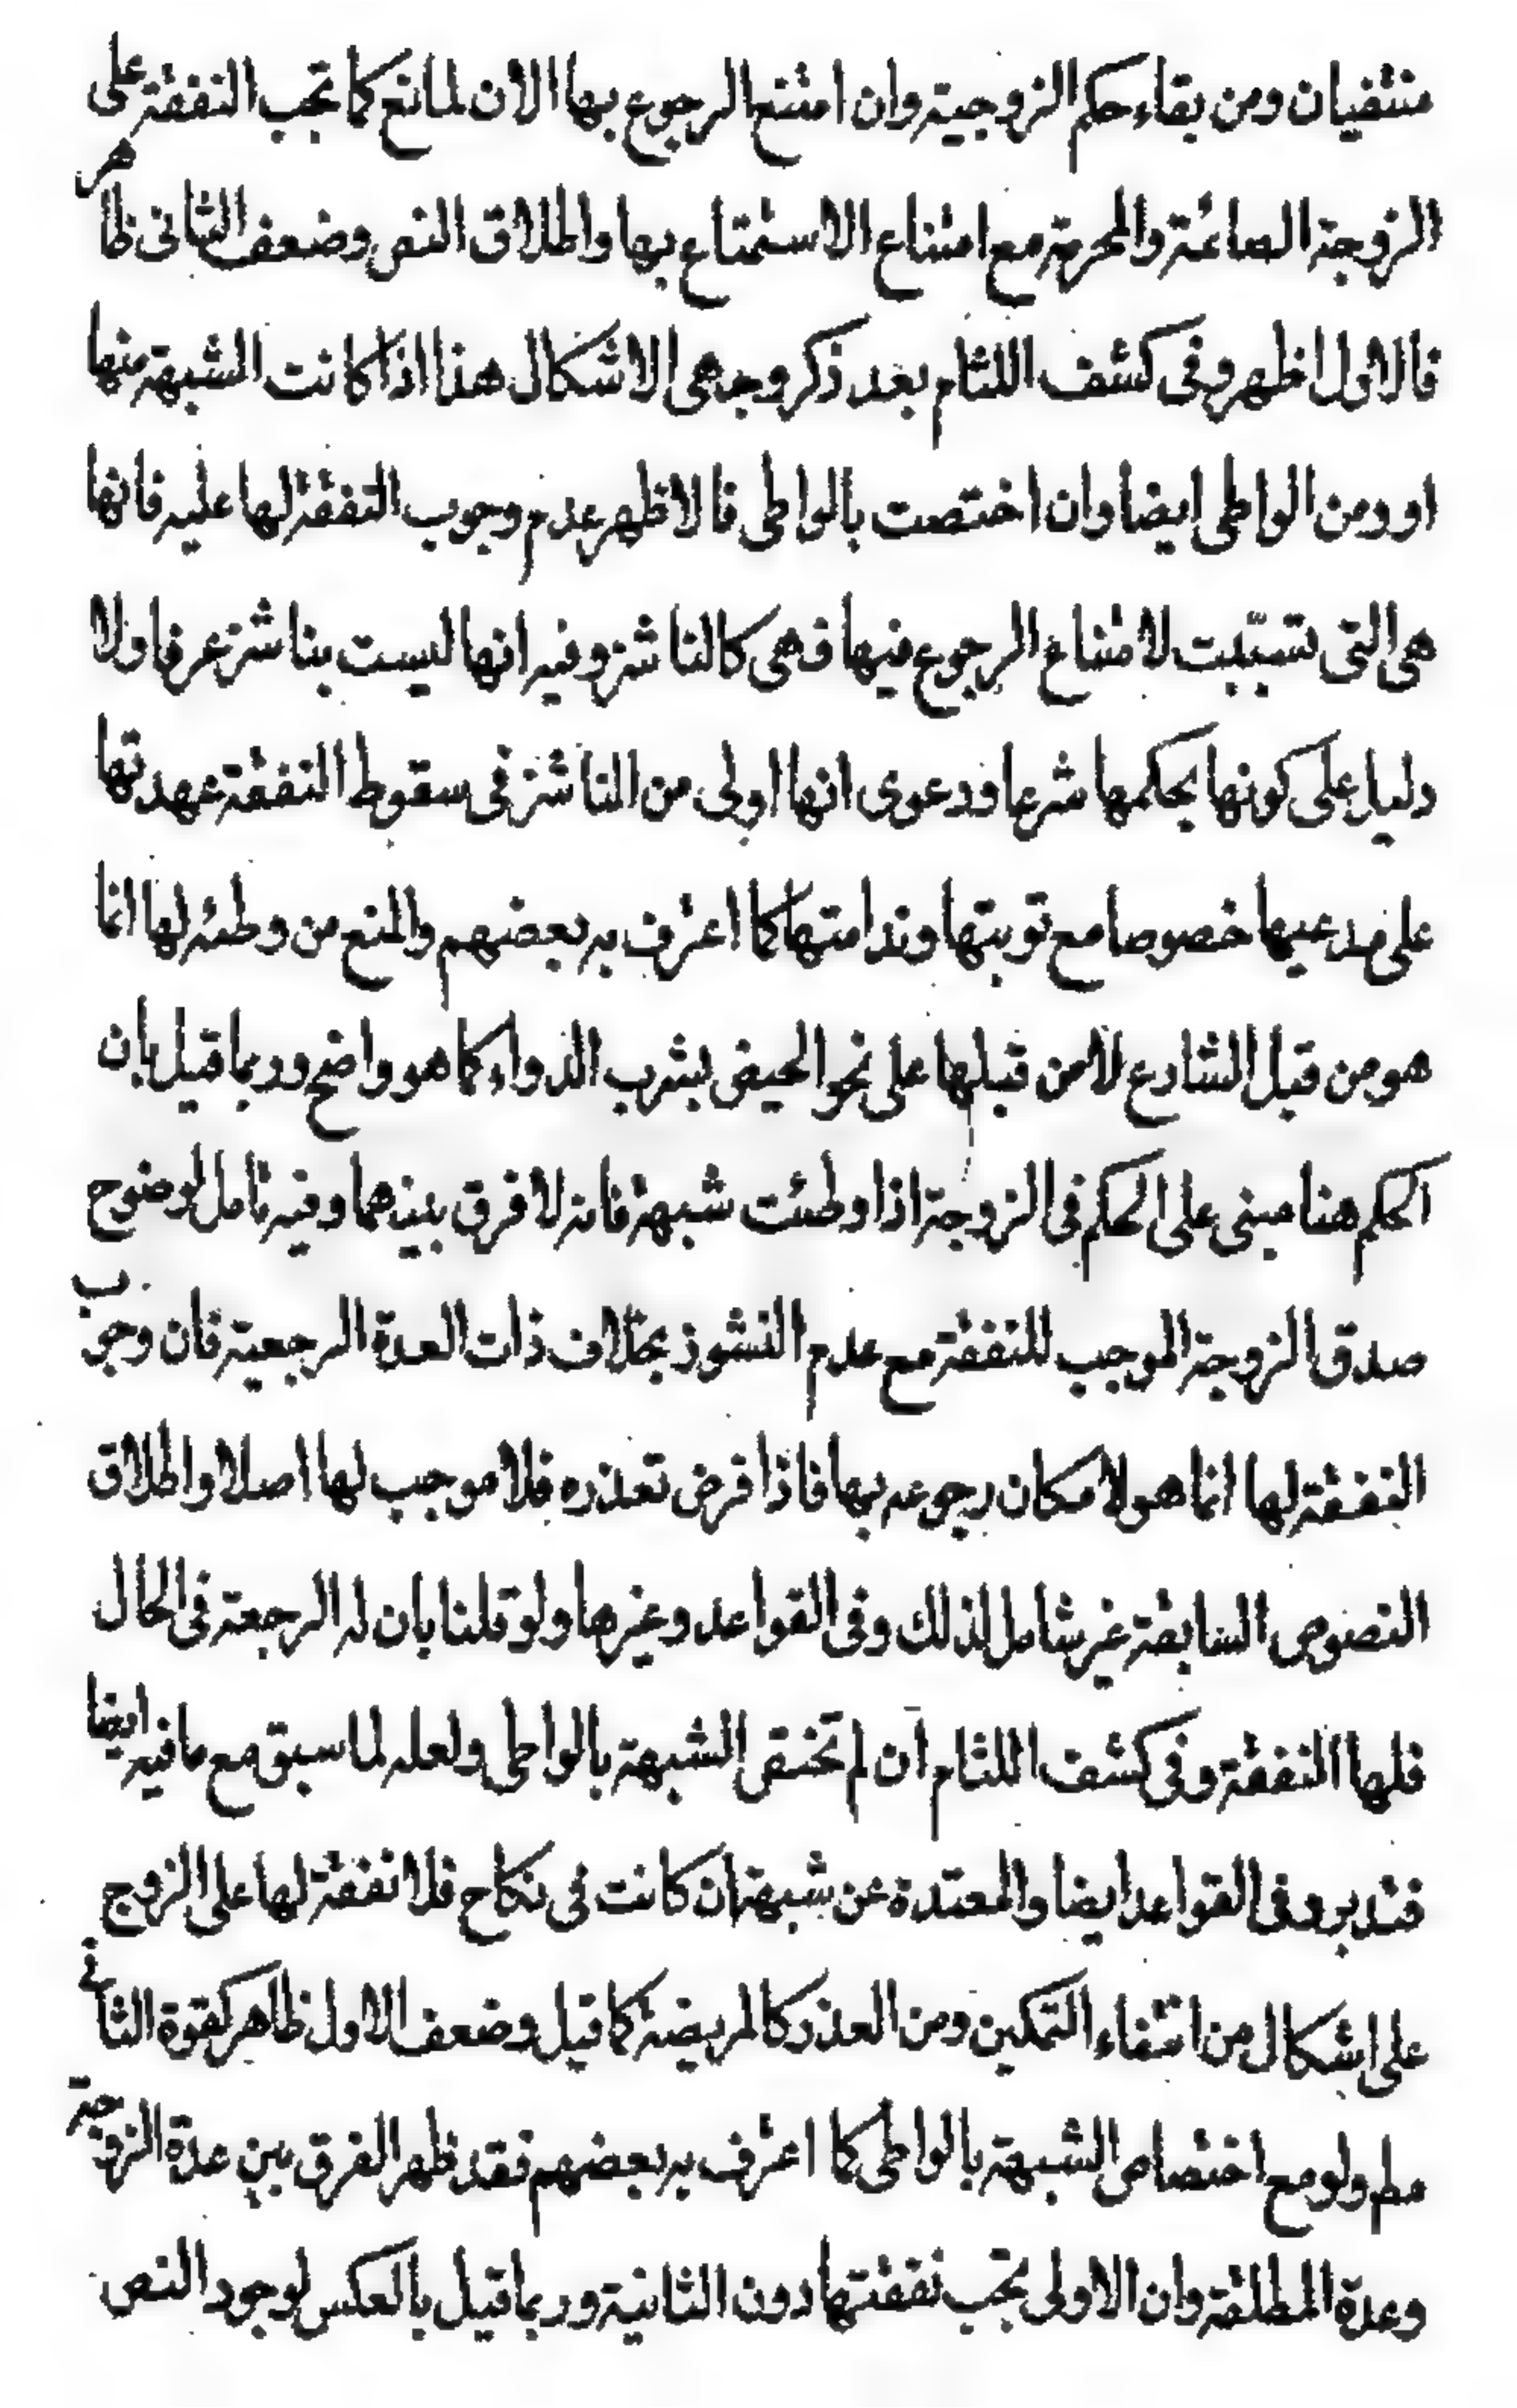 منتفيان ومن بقاء حكم الزوجية وان امتنع الرجوع بها الان لمانع كما تجب النفقة على
الزوجة الصائمة والمحرمة مع امتناع الاستمتاع بها واطلاق النص وضعف الثانى ظاهر
فالاول اظهر وفى كشف اللثام بعد ذكر وجهى الاشكال هذا اذا كانت الشبهة منها
او ومن الواطى ايضا وان اختصت بالواطى فالاظهر عدم وجوب النفقة لها عليه فانها
هى التى تسبّبت لامتناع الرجوع فيها فهى كالناشز وفيه انها ليست بناشز عرفا ولا
دليل على كونها بحكمها شرعا ودعوى انها اولى من الناشز فى سقوط النفقة عهدتها
على مدعيها خصوصا مع توبتها وندامتها كما اعترف به بعضهم والمنع من وطئه لها انما
هو من قبل الشارع لا من قبلها على نحو الحيض بشرب الدواء كما هو واضح وربما قيل بان
الحكم هنا مبنى على الحكم فى الزوجة اذا وطئت شبهة فانه لا فرق بينهما وفيه تامل لوضوح
صدق الزوجة الموجب للنفقة مع عدم النشوز بخلاف ذات العدة الرجعية فان وجوب
النفقة لها انما هو لامكان رجوعه بها فاذا فرض تعذره فلا موجب لها اصلا واطلاق
النصوص السابقة غير شامل لذلك وفى القواعد وغيرها ولو قلنا بان له الرجعة فى الحال
فلها النفقة وفى كشف اللثام ان لم تختص الشبهة بالواطى ولعله لما سبق مع ما فيه ايضا
فتدبر وفى القواعد ايضا والمعتدة عن شبهة ان كانت فى نكاح فلا نفقة لها على الزوج
على اشكال من انتفاء التمكين ومن العذر كالمريضة كما قيل وضعف الاول ظاهر كقوة الثانى
مطم ولو مع اختصاص الشبهة بالواطى كما اعترف به بعضهم فقد ظهر الفرق بين عدة الزوجة
وعدة المطلقة وان الاولى تجب نفقتها دون الثانية وربما قيل بالعكس لوجود النص